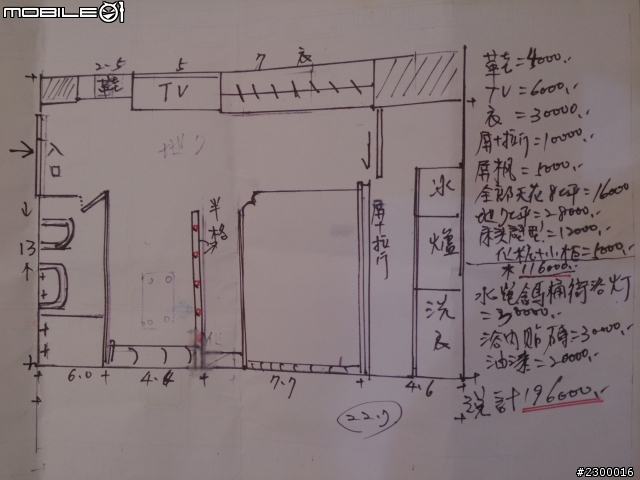 MOBILE01
2-5
5
7
衣
鞋
TV
入
口
13
半
格
屏
+
拉
门
冰
爐
洗
衣
6.0
4.4
7.7
4.6
22.7
鞋=4000
TV=6000
衣=30000
屏+拉门=10000
屏枫=5000
全部天花8坪=16000
地7坪=28000
床
=12000
化枱+小柜=5000
木116000
水電
馬桶
浴灯
=30000
浴内貼磚=30000
油漆=20000
總計196000
#2300016